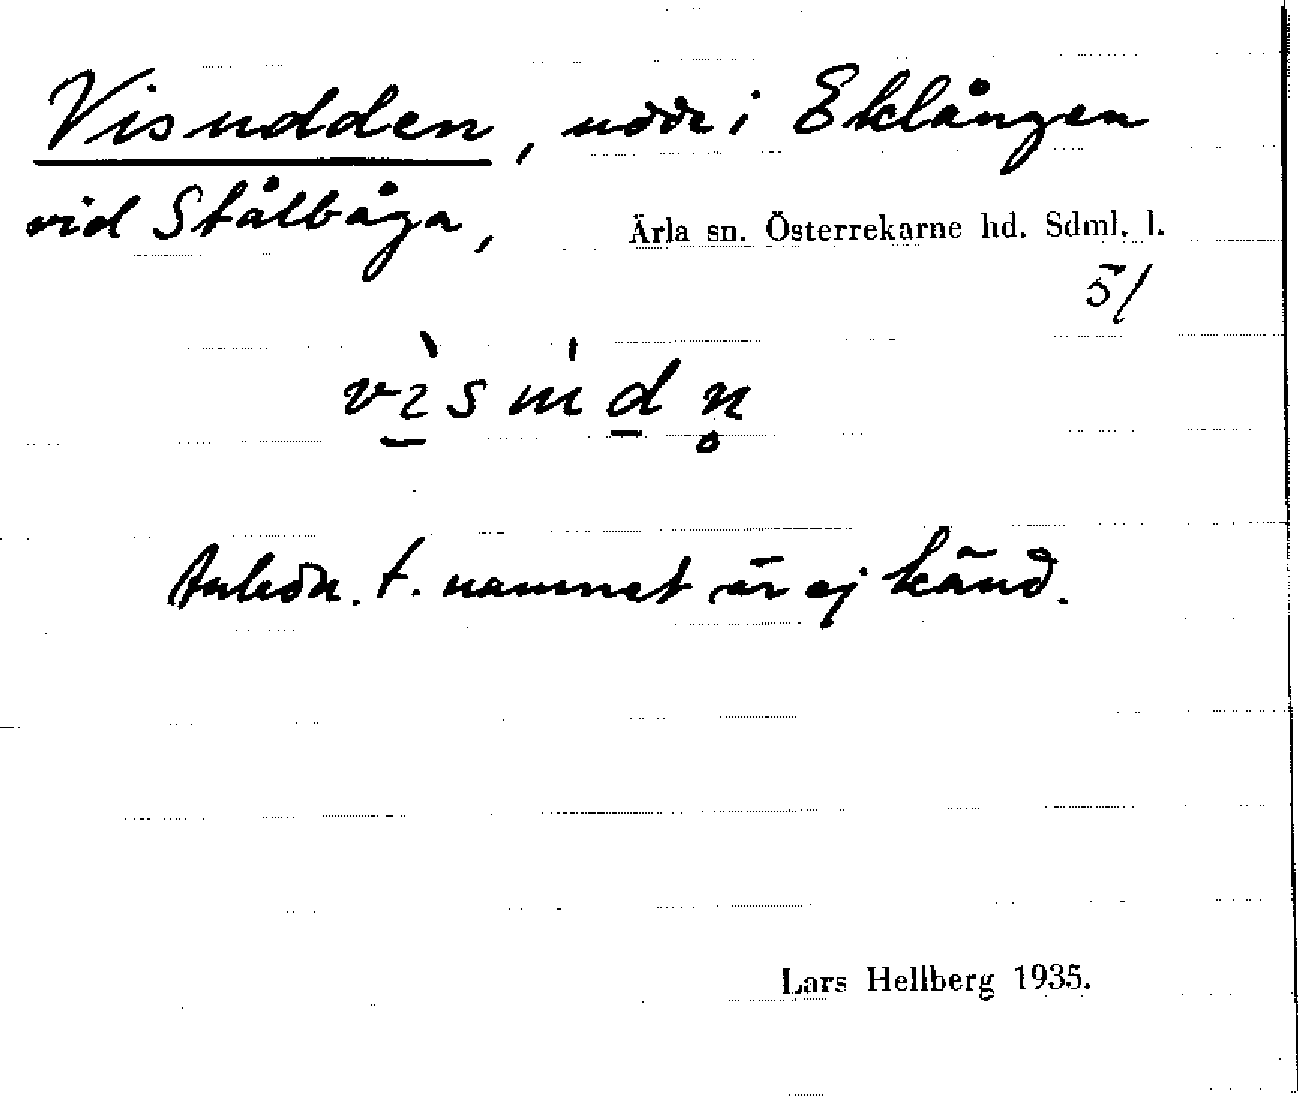 Visudden, udde i Eklången
vid Stålbåga, Ärla sn. Österrekarne hd. Sdml. l.
5/
Anledn. t. namnet är ej känd.
Lars Hellberg 1935.